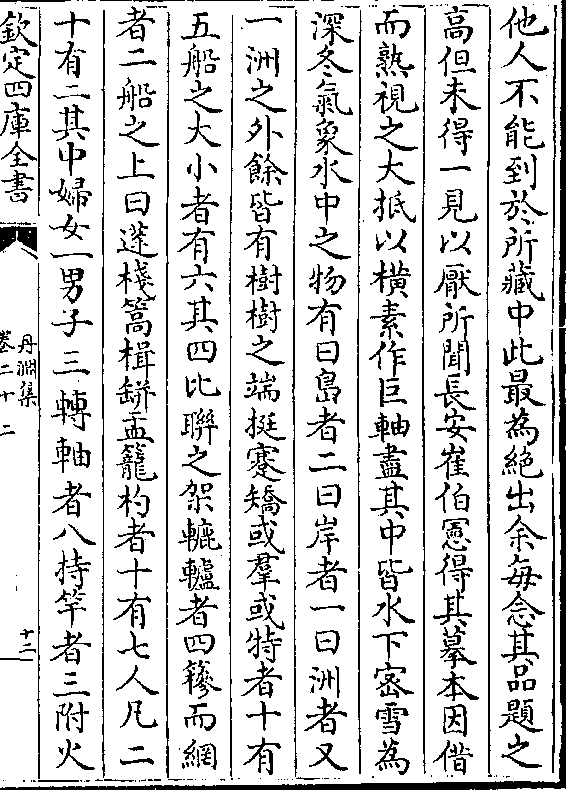 他人不能到於所藏中此最為絶出余每念其品題之
高但未得一見以厭所聞長安崔伯憲得其摹本因借
而熟視之大抵以横素作巨軸盡其中皆水下密雪為
深冬氣象水中之物有曰島者二曰岸者一曰洲者又
一洲之外餘皆有樹樹之端挺蹇矯或羣或特者十有
五船之大小者有六其四比聯之架轆轤者四篸而網
者二船之上曰蓬棧篙楫缾盂籠杓者十有七人凡二
十有二其中婦女一男子三轉軸者八持竿者三附火
欽定四庫全書
丹淵集
卷二十二
十三